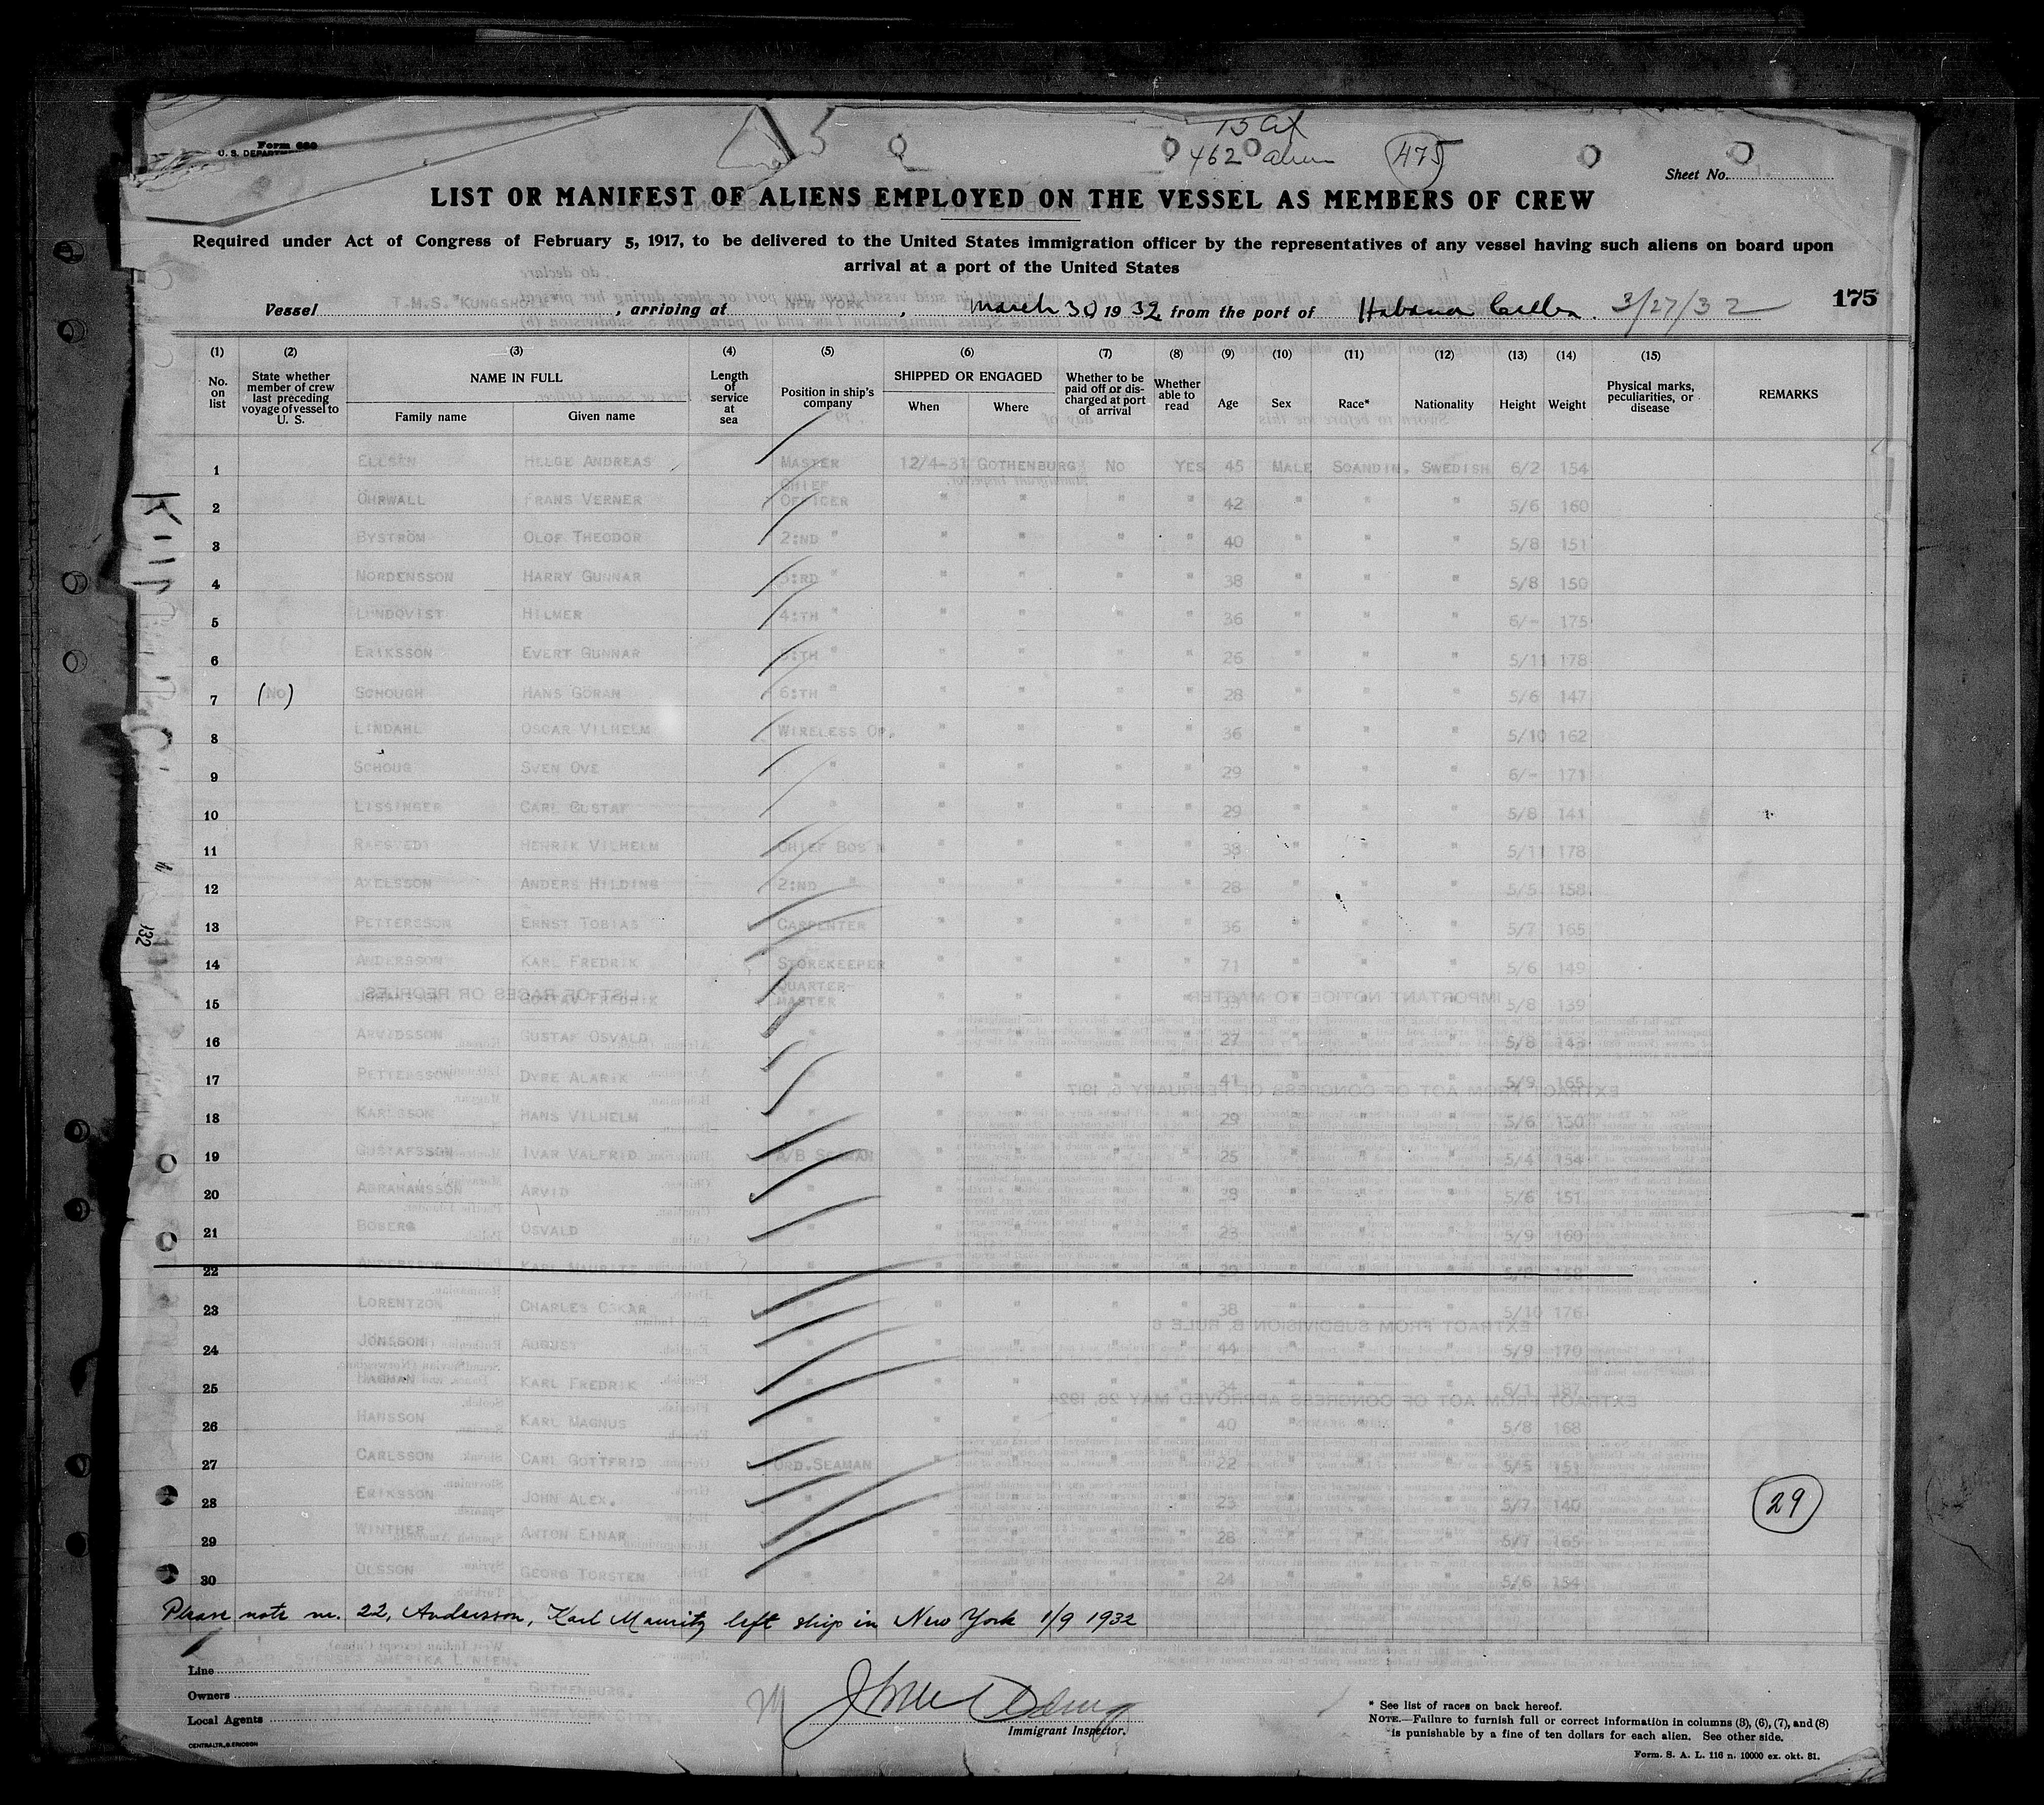 Form 680
U. S. DEPARTM
15
462 alien 475
Sheet No.
LIST OR MANIFEST OF ALIENS EMPLOYED ON THE VESSEL AS MEMBERS OF CREW
Required under Act of Congress of February 5, 1917, to be delivered to the United States immigration officer by the representatives of any vessel having such aliens on board upon
arrival at a port of the United States
Vessel T.M.S. "KUNGSHOLM", arriving at NEW YORK, March 30 1932 from the port of Habana Cuba. 3/27/32 175
(1) (2) (3) (4) (5) (6) (7) (8) (9) (10) (11) (12) (13) (14) (15)
No. on list State whether member of crew last preceding voyage of vessel to U. S. NAME IN FULL Family name Given name Length of service at sea Position in ship's company SHIPPED OR ENGAGED When Where Whether to be paid off or discharged at port of arrival Whether able to read Age Sex Race* Nationality Height Weight Physical marks, peculiarities, or disease REMARKS
1 HELGE ANDREAS MASTER 12/4-31 GOTHENBURG NO YES 45 MALE SCANDIN. SWEDISH 6/2 154
2 ÖHRWALL FRANS VERNER CHIEF OFFICER " " " " 42 " " " 5/6 160
3 BYSTRÖM OLOF THEODOR 2:ND " " " " " 40 " " " 5/8 151
4 NORDENSSON HARRY GUNNAR 3:RD " " " " " 38 " " " 5/8 150
5 LUNDQVIST HILMER 4:TH " " " " " 36 " " " 6/- 175
6 ERIKSSON EVERT GUNNAR 5:TH " " " " " 26 " " " 5/11 178
7 (NO) SCHOUGH HANS GÖRAN 6:TH " " " " " 28 " " " 5/6 147
8 LINDAHL OSCAR VILHELM WIRELESS OP. " " " " 36 " " " 5/10 162
9 SCHOUG SVEN OVE " " " " " 29 " " " 6/- 171
10 LISSINGER CARL GUSTAF " " " " " 29 " " " 5/8 141
11 RAFSTEDT HENRIK VILHELM CHIEF BOS'N " " " " 38 " " " 5/11 178
12 AXELSSON ANDERS HILDING 2:ND " " " " " 28 " " " 5/5 158
13 PETTERSSON ERNST TOBIAS CARPENTER " " " " 36 " " " 5/7 165
14 ANDERSSON KARL FREDRIK STOREKEEPER " " " " 71 " " " 5/6 149
15 JOHANSSON GUSTAV FREDRIK QUARTER-MASTER " " " " " " " 5/8 139
16 ARVIDSSON GUSTAF OSVALD " " " " " 27 " " " 5/8 143
17 PETTERSSON DYRE ALARIK " " " " " 41 " " " 5/9 165
18 KARLSSON HANS VILHELM " " " " " 29 " " " 5/6 150
19 GUSTAFSSON IVAR VALFRID A/B SEAMAN " " " " 25 " " " 5/4 154
20 ABRAHAMSSON ARVID " " " " " 38 " " " 5/6 151
21 BOBERG OSVALD " " " " " 23 " " " 5/9 160
22 ANDERSSON KARL MAURITZ " " " " 29 " " " 5/8 158
23 LORENTZON CHARLES OSKAR " " " " " 38 " " " 5/10 176
24 JÖNSSON AUGUST " " " " " 44 " " " 5/9 170
25 HAGMAN KARL FREDRIK " " " " " 34 " " " 6/1 187
26 HANSSON KARL MAGNUS " " " " " 40 " " " 5/8 168
27 CARLSSON CARL GOTTFRID ORD.SEAMAN " " " " 22 " " " 5/5 151
28 ERIKSSON JOHN ALEX. " " " " " 23 " " " 5/7 140
29 WINTHER ANTON EINAR " " " " " 28 " " " 5/7 165
30 OLSSON GEORG TORSTEN " " " " " 24 " " " 5/6 154
29
Please note nr. 22, Andersson, Karl Mauritz left ship in New York 1/9 1932
Line SVENSKA AMERIKA LINIEN.
Owners " " GOTHENBURG.
Local Agents AMERICAN LINE NEW YORK
Immigrant Inspector.
CENTRALTR., G. ERICSON
* See list of races on back hereof.
NOTE.—Failure to furnish full or correct information in columns (3), (6), (7), and (8)
is punishable by a fine of ten dollars for each alien. See other side.
Form. S. A. L. 116 n. 10000 ex. okt. 31.